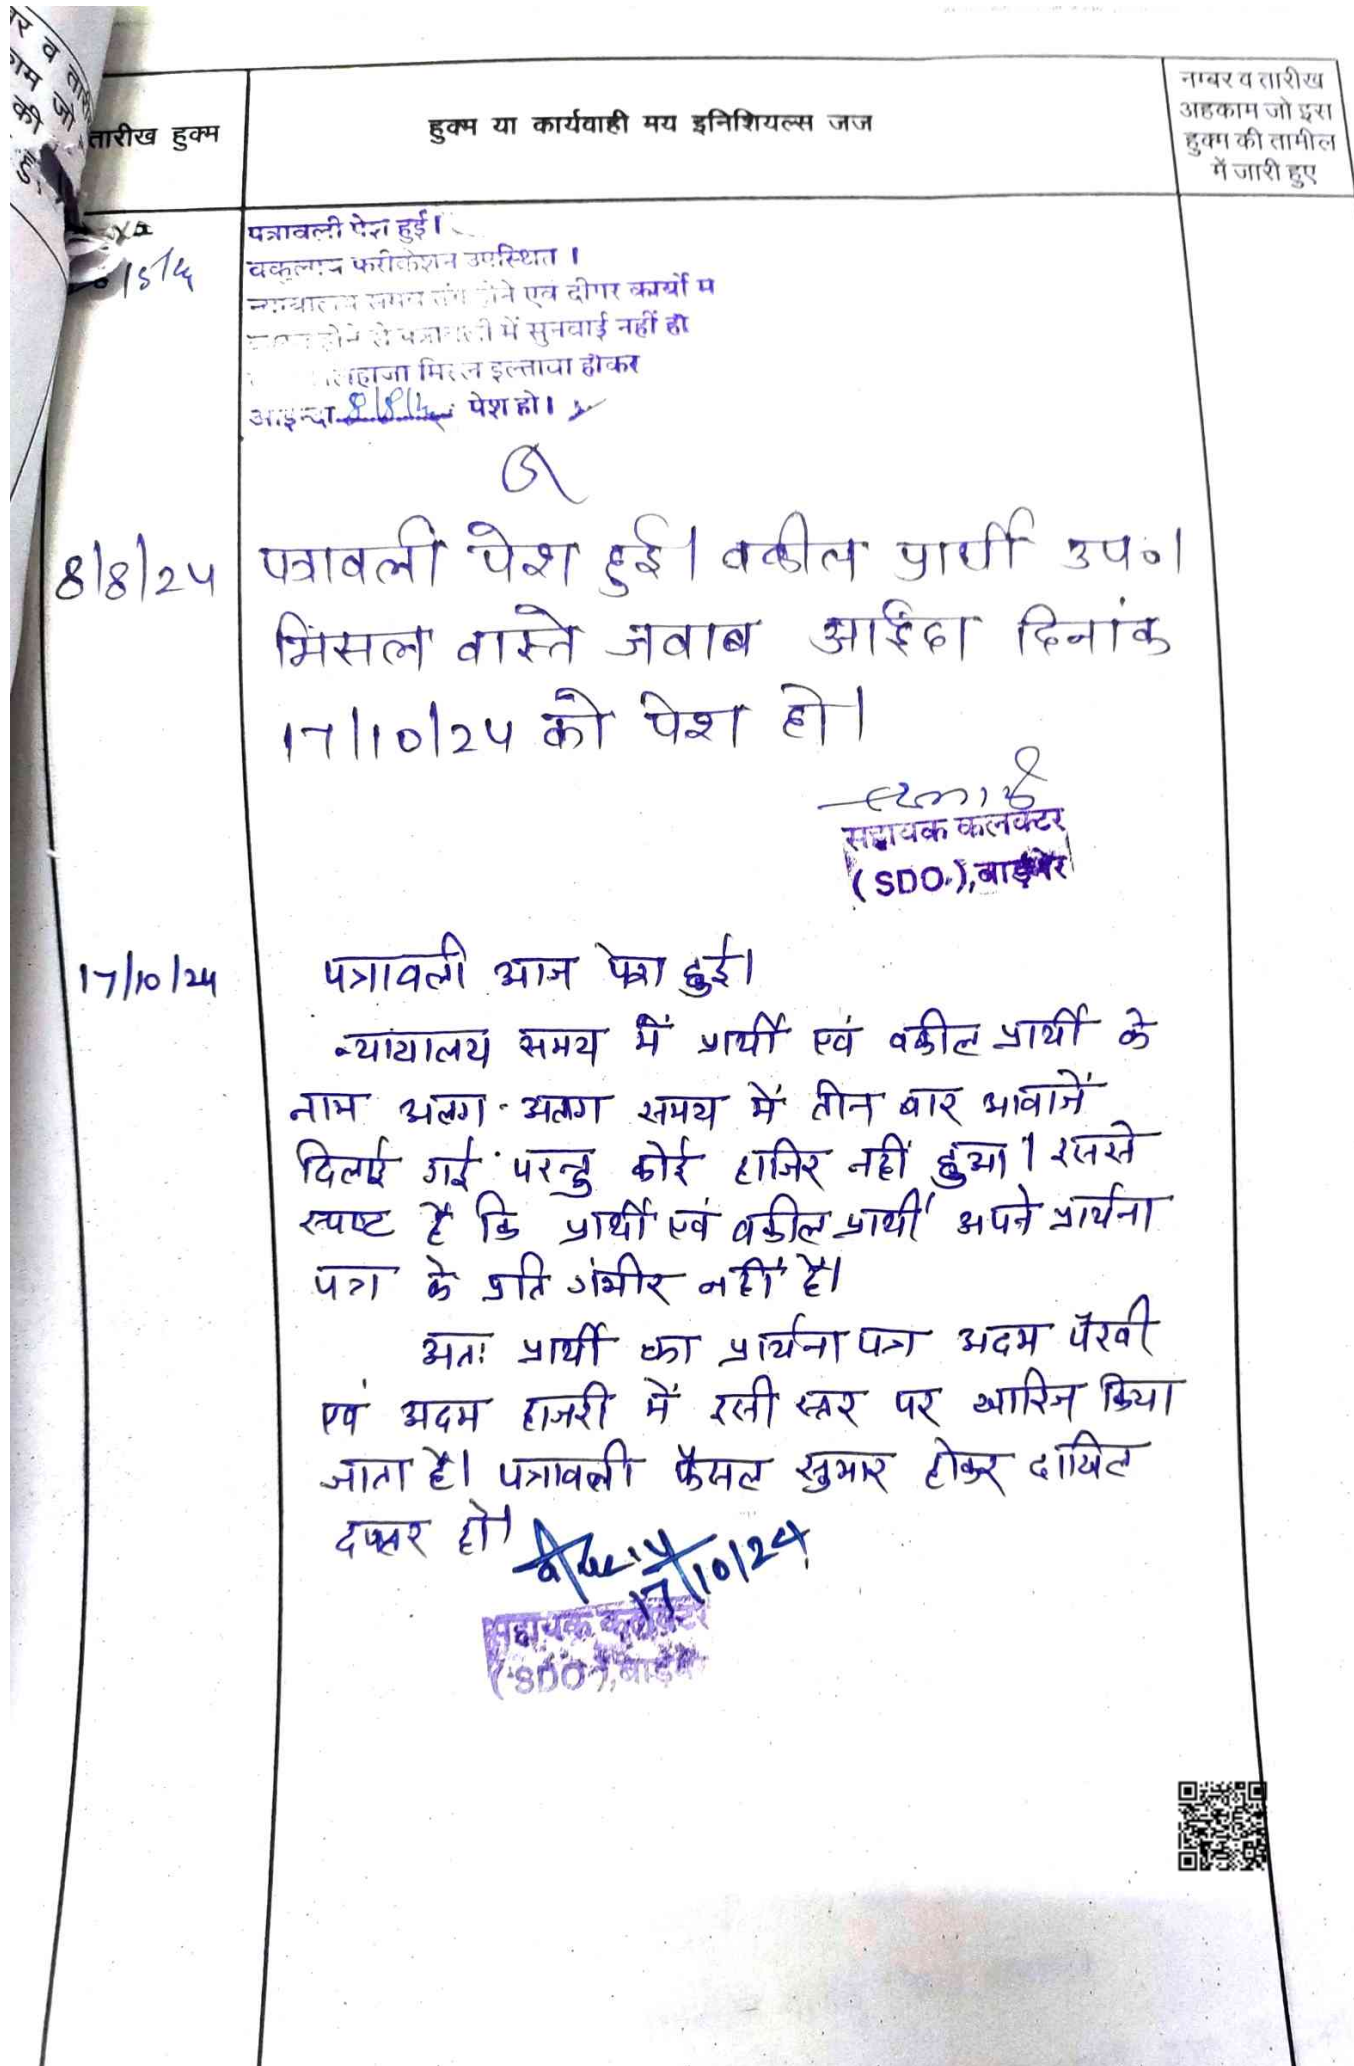 र व तारी
ाम जो
की
तारीख हुक्म
हुक्म या कार्यवाही मय इनिशियल्स जज
नम्बर व तारीख
अहकाम जो इस
हुक्म की तामील
में जारी हुए
पत्रावली पेश हुई।
वकुलाय फरीकेशन उपस्थित।
न्यायालय समय तंग होने एवं दीगर कार्यों म
होने से पत्रावली में सुनवाई नहीं हो
लिहाजा मिस्ल इल्तावा होकर
आइन्दा 8/8/24 पेश हो।
8/8/24
पत्रावली पेश हुई। वकील प्रार्थी उप०।
मिसल वास्ते जवाब आईंदा दिनांक
17/10/24 को पेश हो।
सहायक कलक्टर
(SDO.), बाड़मेर
17/10/24
पत्रावली आज पेश हुई।
न्यायालय समय में प्रार्थी एवं वकील प्रार्थी के
नाम अलग-अलग समय में तीन बार आवाजें
दिलाई गई परन्तु कोई हाजिर नहीं हुआ। इससे
स्पष्ट है कि प्रार्थी एवं वकील प्रार्थी अपने प्रार्थना
पत्र के प्रति गंभीर नहीं है।
अतः प्रार्थी का प्रार्थना पत्र अदम पैरवी
एवं अदम हाजरी में इसी स्तर पर खारिज किया
जाता है। पत्रावली फैसल सुमार होकर दाखिल
दफ्तर हो।
17/10/24
सहायक कलक्टर
(SDO), बाड़मेर